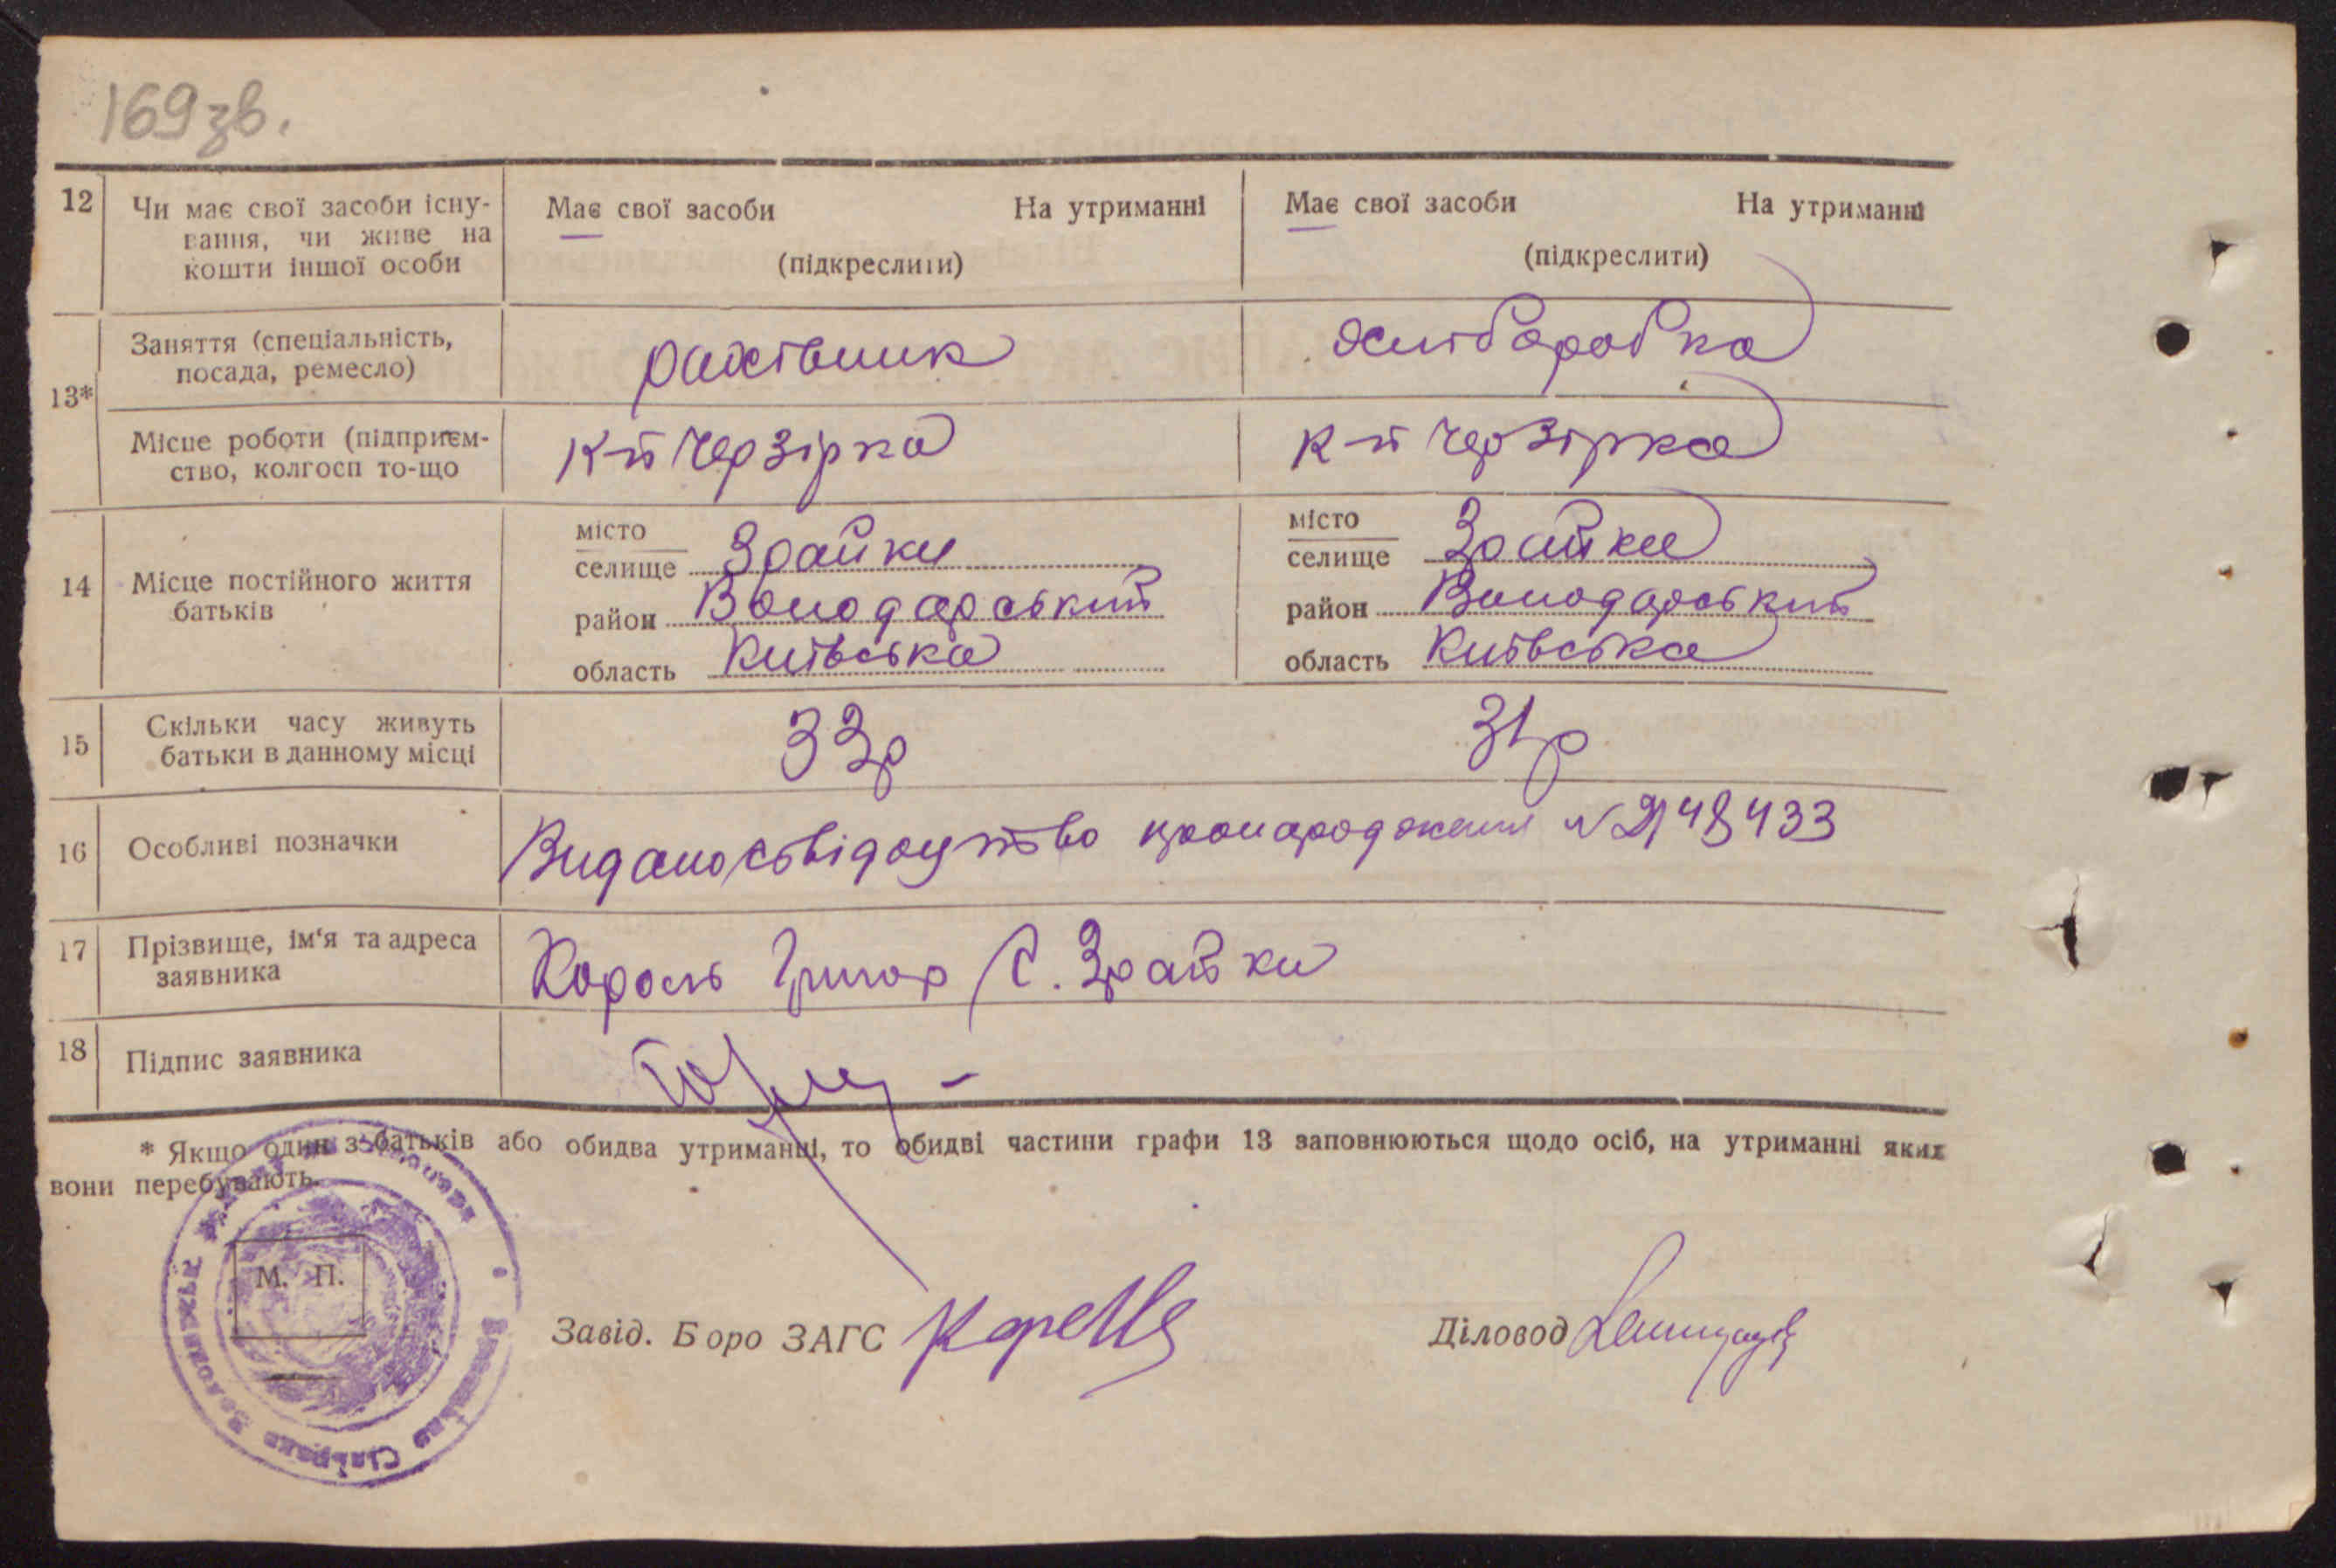 169 зв.
12 Чи має свої засоби існу-
вання, чи живе на
кошти іншої особи
Має свої засоби На утриманні
(підкреслити)
Має свої засоби На утриманні
(підкреслити)
13*
Заняття (спеціальність,
посада, ремесло)
рахівник
хліборобка
Місце роботи (підприєм-
ство, колгосп то-що
К-п Чер Зірка
К-п Чер Зірка
14 Місце постійного життя
батьків
місто
селище Зрайки
район Володарський
область Київська
місто
селище Зрайки
район Володарський
область Київська
15 Скільки часу живуть
батьки в данному місці
33р
31р
16 Особливі позначки
Видано свідоцтво про народження №
17 Прізвище, ім'я та адреса
заявника
Король Григор С. Зрайки
18 Підпис заявника
* Якщо один з батьків або обидва утриманці, то обидві частини графи 13 заповнюються щодо осіб, на утриманні яких
вони перебувають.
М. П.
Завід. Б оро ЗАГС
Діловод